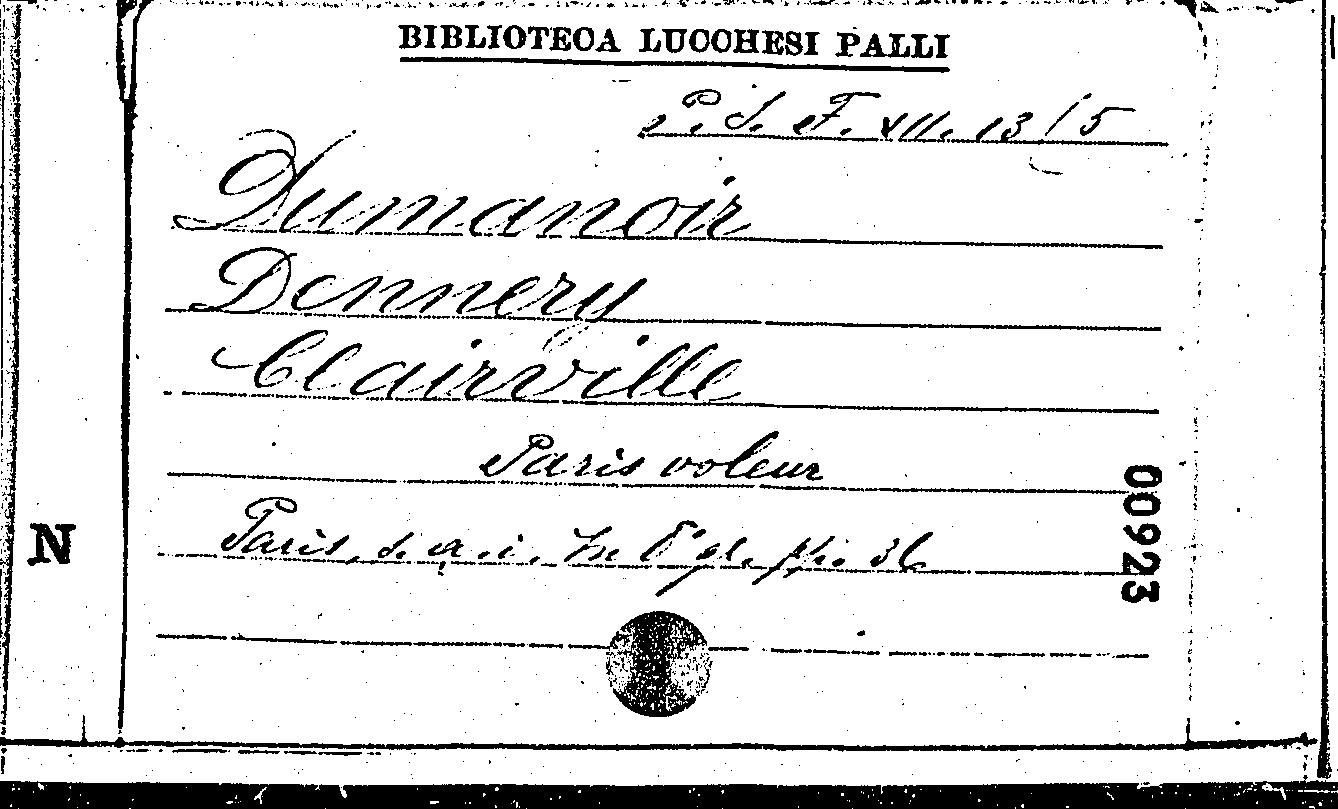 BIBLIOTECA LUCCHESI PALLI
P. S. F. XII. 13/5
Dumanoir
Dennery
Clairville
Paris voleur
00923
N
Paris, s. a. i. in 8° gr. pp. 36